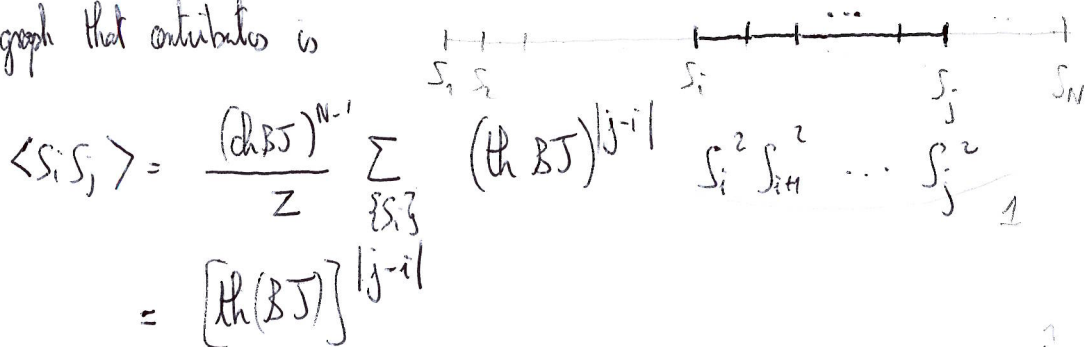 graph that contributes is
S₁ S₂ Sᵢ ... Sⱼ .. S_N
<SᵢSⱼ> = (ch BJ)^{N-1} / Z Σ_{{Sᵢ}} (th BJ)^{|j-i|} Sᵢ² Sᵢ₊₁² ... Sⱼ² 1
= [th(BJ)]^{|j-i|}